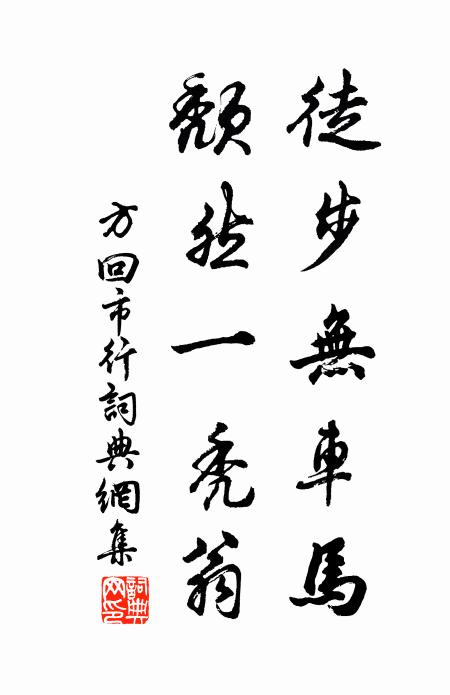 徒步無車馬
頹然一禿翁
方回市行詞典網集
詞典網印